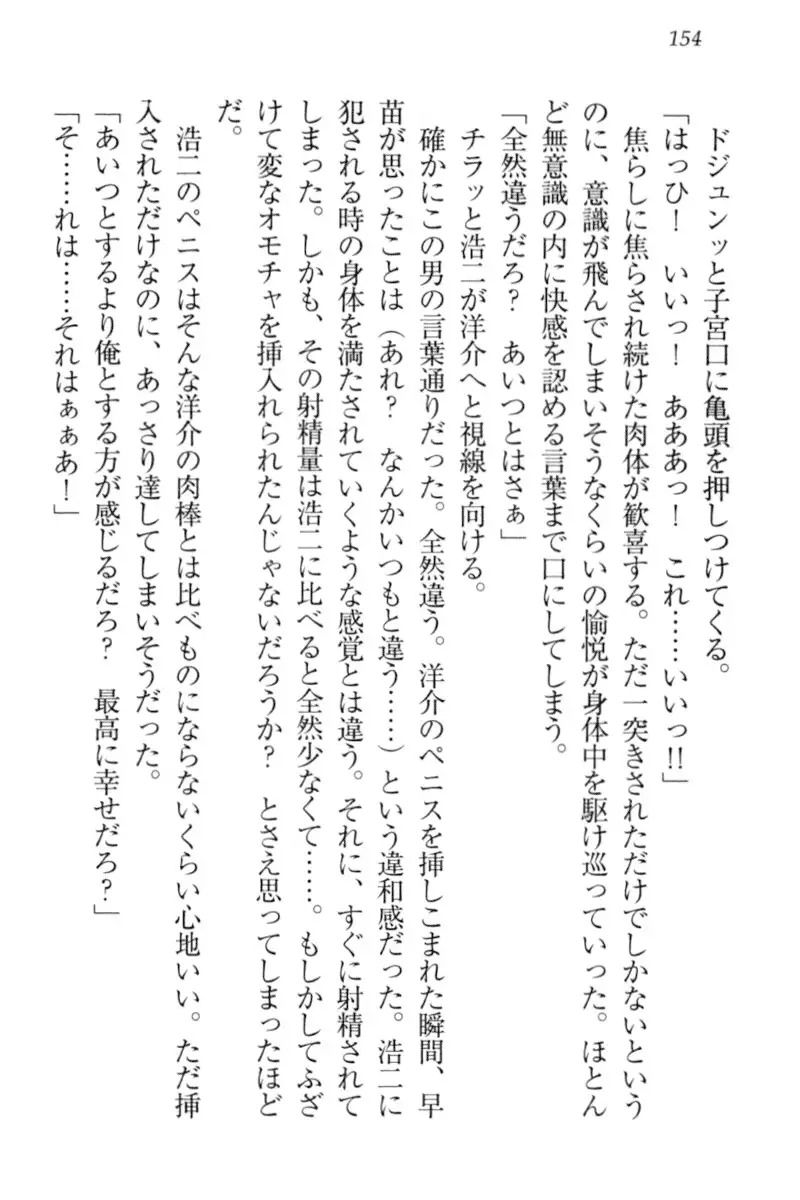 154
ドジュンッと子宮口に亀頭を押しつけてくる。
「はっひ！　いいっ！　あああっ！　これ……いいっ!!」
焦らしに焦らされ続けた肉体が歓喜する。ただ一突きされただけでしかないという
のに、意識が飛んでしまいそうなくらいの愉悦が身体中を駆け巡っていった。ほとん
ど無意識の内に快感を認める言葉まで口にしてしまう。
「全然違うだろ？　あいつとはさぁ」
チラッと浩二が洋介へと視線を向ける。
確かにこの男の言葉通りだった。全然違う。洋介のペニスを挿しこまれた瞬間、早
苗が思ったことは（あれ？　なんかいつもと違う……）という違和感だった。浩二に
犯される時の身体を満たされていくような感覚とは違う。それに、すぐに射精されて
しまった。しかも、その射精量は浩二に比べると全然少なくて……。もしかしてふざ
けて変なオモチャを挿入れられたんじゃないだろうか？　とさえ思ってしまったほど
だ。
浩二のペニスはそんな洋介の肉棒とは比べものにならないくらい心地いい。ただ挿
入されただけなのに、あっさり達してしまいそうだった。
「あいつとするより俺とする方が感じるだろ？　最高に幸せだろ？」
「そ……れは……それはぁぁあ！」